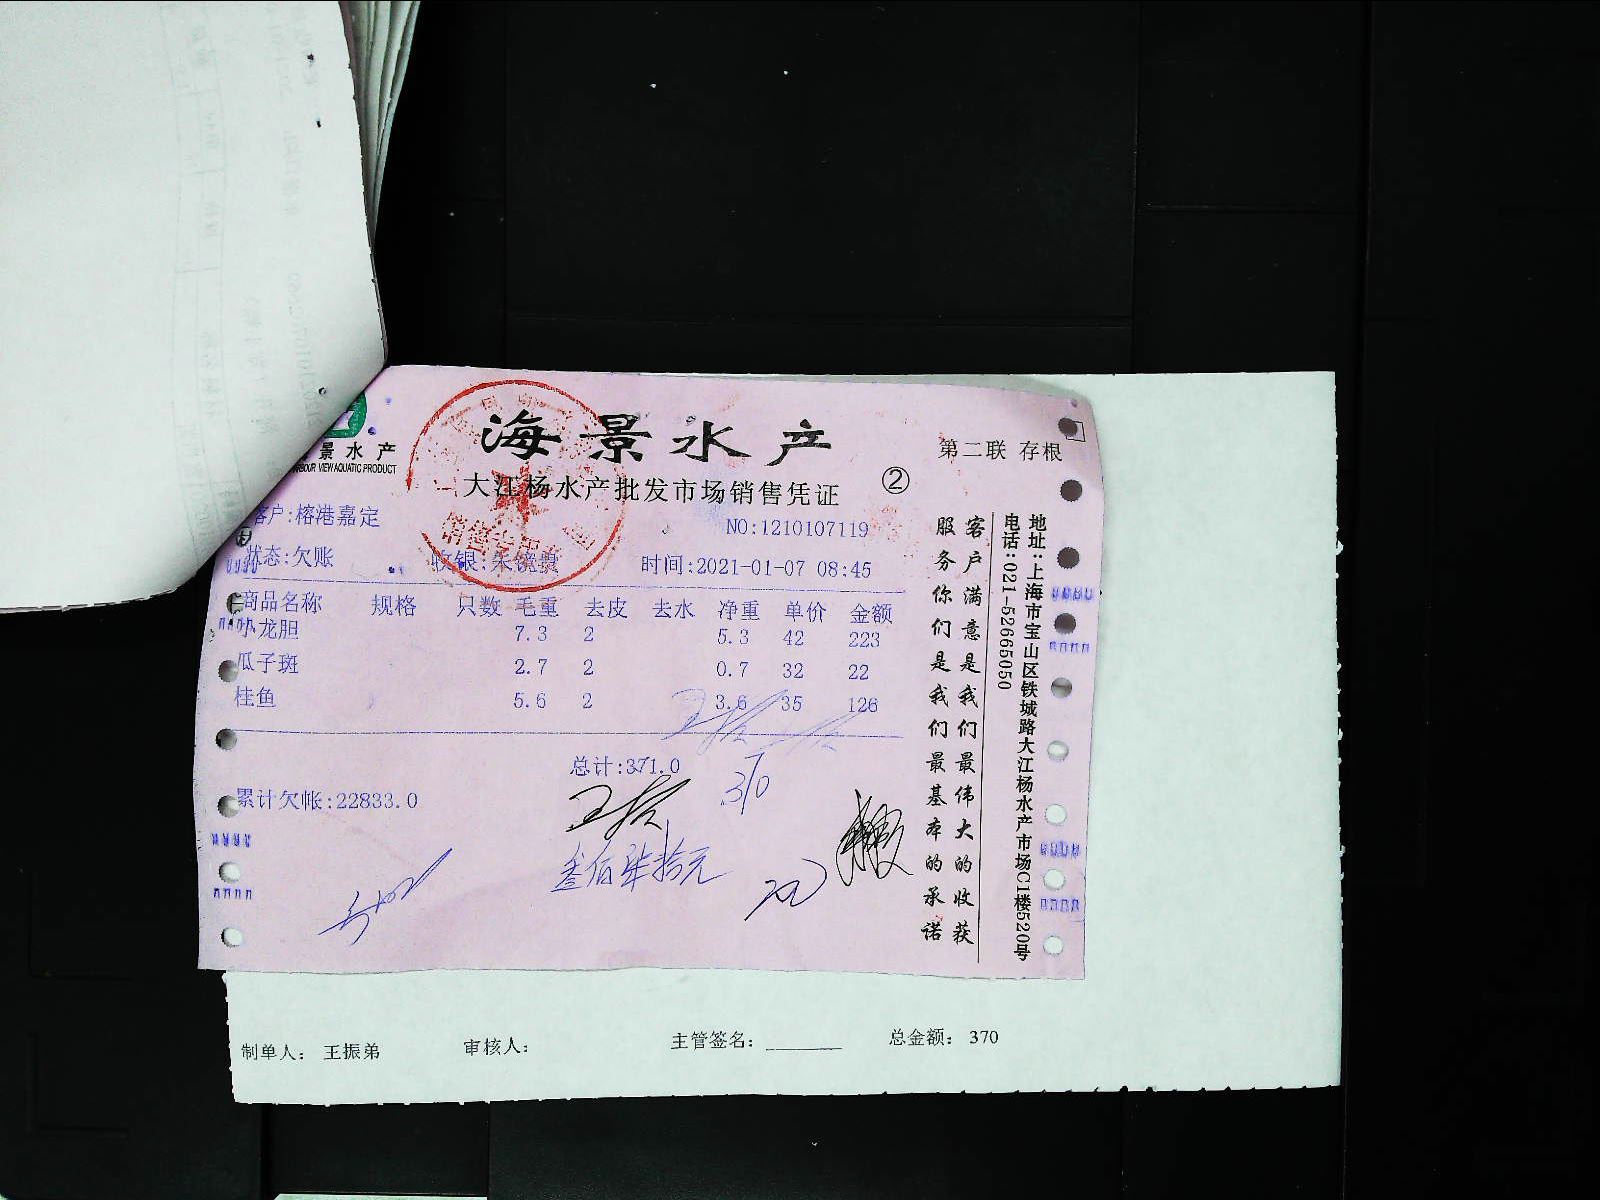 海景水产
景水产
RBOUR VIEW AQUATIC PRODUCT
第二联 存根
大江杨水产批发市场销售凭证 ②
客户:榕港嘉定
NO:1210107119
状态:欠账
收银:朱镜
时间:2021-01-07 08:45
商品名称 规格 只数 毛重 去皮 去水 净重 单价 金额
小龙胆 7.3 2 5.3 42 223
瓜子斑 2.7 2 0.7 32 22
桂鱼 5.6 2 3.6 35 126
总计:371.0
370
累计欠帐:22833.0
叁佰柒拾元
客户满意是我们最伟大的收获
服务你们是我们最基本的承诺
地址:上海市宝山区铁城路大江杨水产市场C1楼520号
电话:021-52665050
制单人: 王振弟 审核人: 主管签名: 总金额: 370